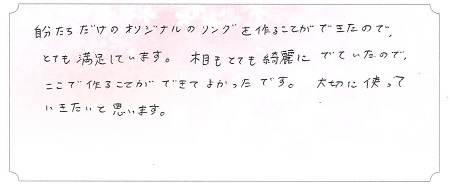 自分たちだけのオリジナルのリングを作ることができたので、
とても満足しています。 木目もとても綺麗にでていたので、
ここで作ることができてよかったです。 大切に使って
いきたいと思います。